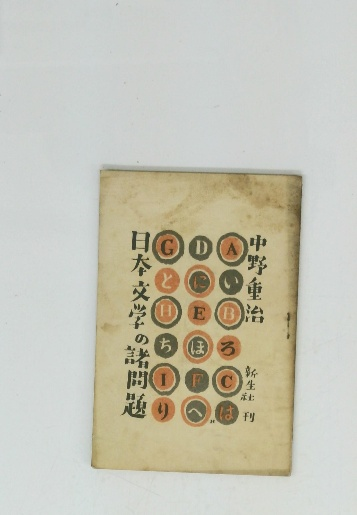 中野重治
新生社 刊
A い B ろ C は
D に E ほ F へ
G と H ち I り
日本文学の諸問題